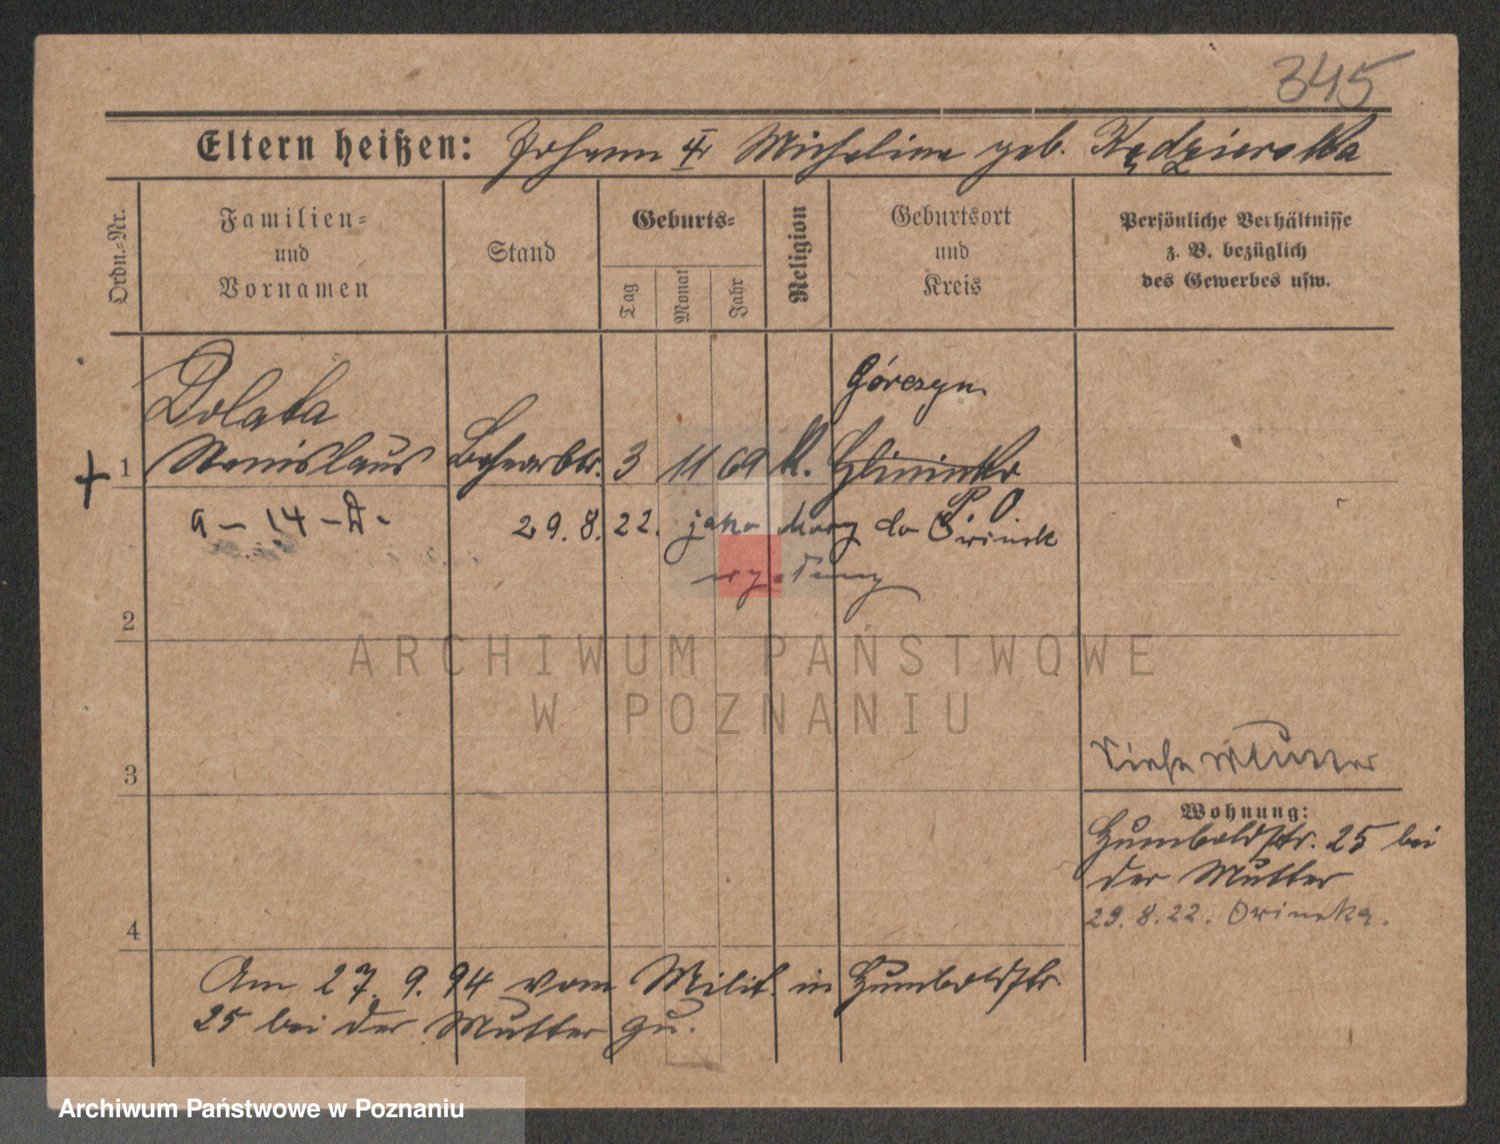 345
Eltern heißen: Johann u Michalina geb. Kędzierska
Ordn.-Nr.
Familien- und Vornamen
Stand
Geburts-
Tag
Monat
Jahr
Religion
Geburtsort und Kreis
Persönliche Verhältnisse z. B. bezüglich des Gewerbes usw.
Dolata
Górczyn
+ 1 Stanislaus 3 11 69 K.
P. O
a - 14 - D -
29. 8. 22. jako do
2
ARCHIWUM PAŃSTWOWE
W POZNANIU
3
Siehe Mutter
Wohnung:
Humboldstr. 25 bei
der Mutter
29. 8. 22.
4
Am 27. 9. 94 vom Milit. in Humboldstr.
25 bei der Mutter zu.
Archiwum Państwowe w Poznaniu